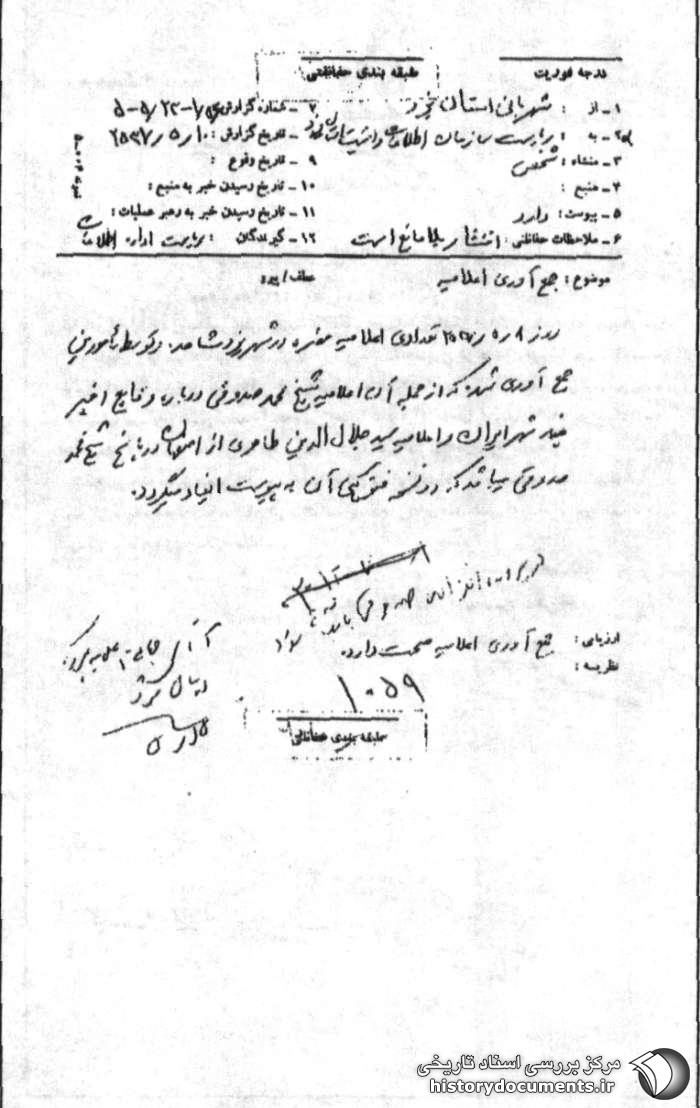 درجه فوریت
طبقه بندی حفاظتی
۱ـ از : شهربانی استان یزد
۷ـ شماره گزارش : ۵-۵/۲۲-
۲ـ به : ریاست سازمان اطلاعات و امنیت استان یزد
۸ـ تاریخ گزارش : ۲۵۳۷/۵/۱۰
۳ـ منشاء : شخص
۹ـ تاریخ وقوع :
۴ـ منبع :
۱۰ـ تاریخ رسیدن خبر به منبع :
۵ـ پیوست : دارد
۱۱ـ تاریخ رسیدن خبر به رهبر عملیات :
۶ـ ملاحظات حفاظتی : انتشار بلامانع است
۱۲ـ گیرندگان : ریاست اداره اطلاعات
موضوع : جمع آوری اعلامیه
عطف / پیرو
روز ۲۵۳۷/۵/۸ تعدادی اعلامیه مضره در شهر یزد مشاهده و توسط مأمورین
جمع آوری شد که از جمله آن اعلامیه شیخ محمد صدوقی درباره وقایع اخیر
چند شهر ایران و اعلامیه سید جلال الدین طاهری از اصفهان در پاسخ شیخ محمد
صدوقی میباشد که دو نسخه فتوکپی آن به پیوست ایفاد میگردد.
ارزیابی : جمع آوری اعلامیه صحت دارد.
نظریه :
۱۰۵۹
طبقه بندی حفاظتی
مرکز بررسی اسناد تاریخی
historydocuments.ir